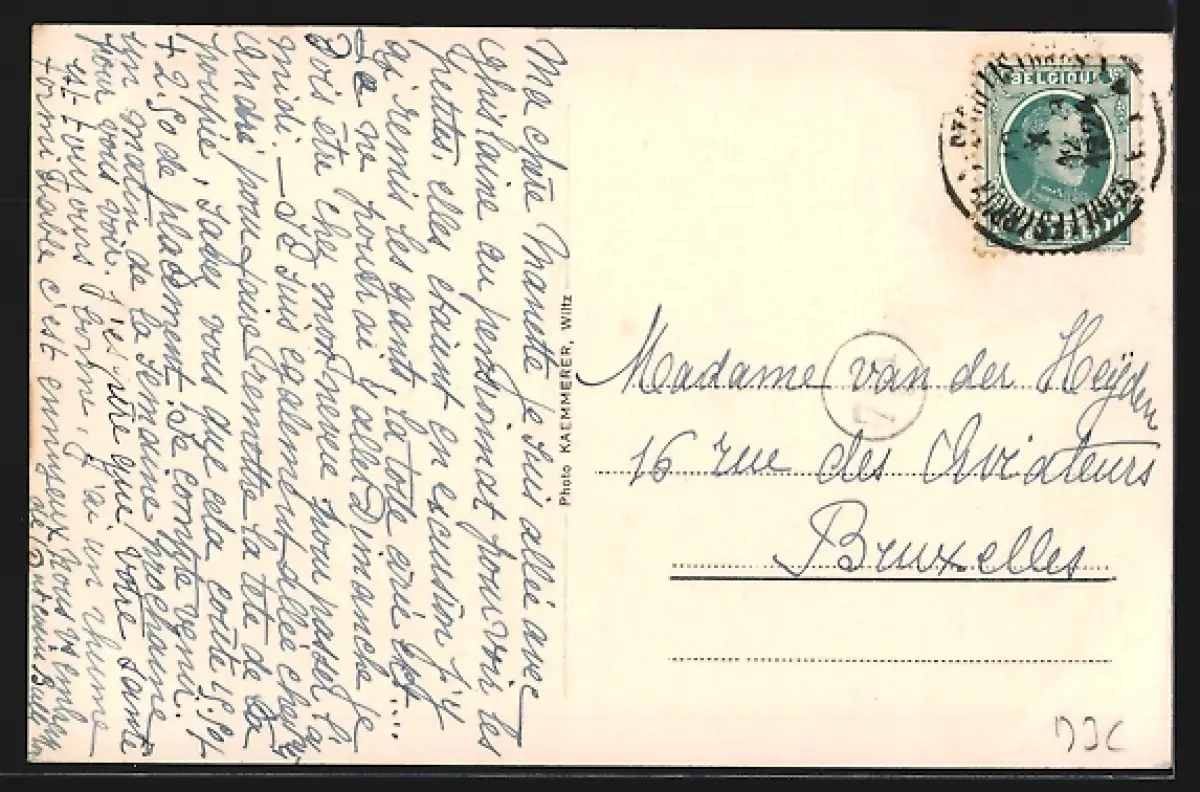 Ma chère Nanette Je suis allé avec
Ghislaine au pensionnat pour voir les
petites, elles étaient en excusion j'y
ai remis les gant, la toile ciré ect....
Je ne pourrai y aller Dimanche je
Dois être chez mon neveu pour passer l'a
midi. — Je suis également allée chez
André pour faire remettre la tête de la
poupée, savez vous que cela coûte 15.50f
+ 2.50 de placement. Je compte venir
un matin de la semaine prochaine
pour vous voir. J'espère que votre santé
est toujours bonne, j'ai un rhume
formidable c'est ennuyeux Nous v
Photo KAEMMERER, Wiltz
BELGIQUE
Madame van der Heÿden
16 rue des Aviateurs
Bruxelles